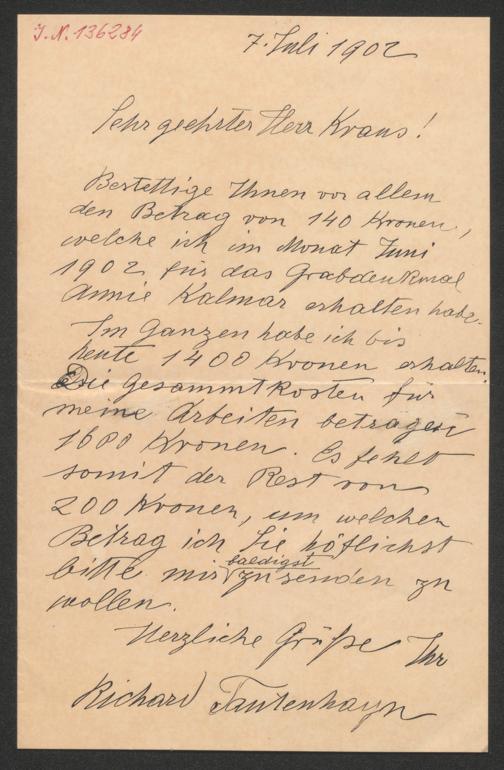 J.N. 136284
7. Juli 1902
Sehr geehrter Herr Kraus!
Bestettige Ihnen vor allem
den Betrag von 140 Kronen,
welche ich im Monat Juni
1902 für das Grabdenkmal
Annie Kalmar erhalten habe.
Im Ganzen habe ich bis
heute 1400 Kronen erhalten.
Die Gesammtkosten für
meine Arbeiten betragen
1600 Kronen. Es fehlt
somit der Rest von
200 Kronen, um welchen
Betrag ich Sie höflichst
bitte mir baldigst zusenden zu
wollen.
Herzliche Grüße Ihr
Richard Tautenhayn